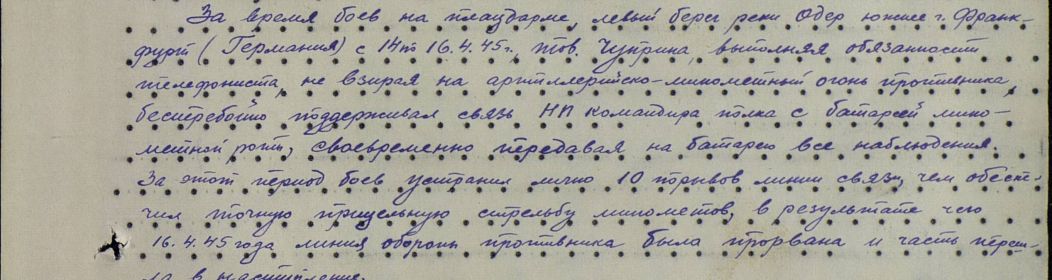 За время боев на плацдарме, левый берег реки Одер южнее г. Франк-
фурт (Германия) с 14 по 16.4.45 г. тов. Чуприна, выполняя обязанности
телефониста, не взирая на артиллерийско-минометный огонь противника,
бесперебойно поддерживал связь НП командира полка с батареей мино-
метной роты, своевременно передавая на батарею все наблюдения.
За этот период боев устранил лично 10 порывов линии связи, чем обеспе-
чил точную прицельную стрельбу минометов, в результате чего
16.4.45 года линия обороны противника была прорвана и часть переш-
ла в наступление.